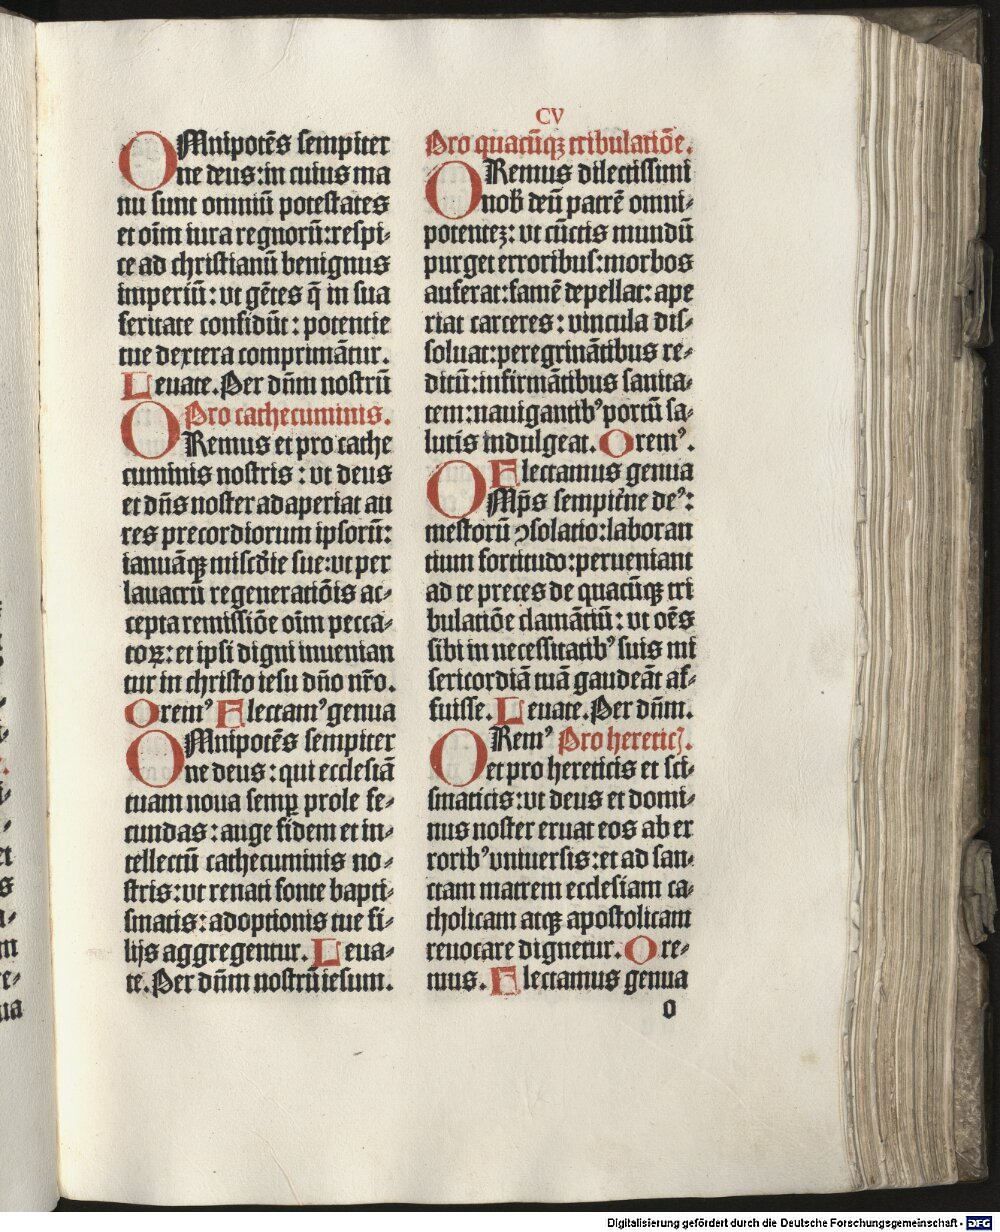 CV
OMnipotēs sempiter
ne deus:in cuius ma
nu sunt omniū potestates
et oīm iura regnorū:respi⸗
ce ad christianū benignus
imperiū: vt gētes q̄ in sua
feritate confidūt: potentie
tue dextera comprimātur.
Leuate. Per dn̄m nostrū
Pro cathecuminis.
ORemus et pro cathe
cuminis nostris: vt deus
et dn̄s noster adaperiat au
res precordiorum ipsorū:
ianuāqꝫ miscd̄ie sue:vt per
lauacrū regeneratiōis ac⸗
cepta remissiōe oīm pecca⸗
toꝝ: et ipsi digni inuenian
tur in christo iesu dn̄o nr̄o.
Oremꝰ Flectamꝰ genua
OMnipotēs sempiter
ne deus: qui ecclesiā
tuam noua semꝑ prole fe⸗
cundas: auge fidem et in⸗
tellectū cathecuminis no⸗
stris: vt renati fonte bapti⸗
smatis: adoptionis tue fi⸗
lijs aggregentur. Leua⸗
te. Per dn̄m nostrū iesum.
Pro quacūqꝫ tribulatiōe.
ORemus dilectissimi
nob̄ deū patrē omni⸗
potentez: vt cūctis mundū
purget erroribus: morbos
auferat: famē depellat: ape
riat carceres: vincula dis⸗
soluat: peregrinātibus re⸗
ditū: infirmātibus sanita⸗
tem: nauigantibꝰ portū sa⸗
lutis indulgeat. Oremꝰ.
Flectamus genua
OMp̄s sempit̄ne deꝰ:
mestorū ꝯsolatio: laboran
tium fortitudo: perueniant
ad te preces de quacūqꝫ tri
bulatiōe clamātiū: vt oēs
sibi in necessitatibꝰ suis mi
sericordiā tuā gaudeāt af⸗
fuisse. Leuate. Per dn̄m.
ORemꝰ Pro hereticꝭ.
et pro hereticis et sci⸗
smaticis: vt deus et domi⸗
nus noster eruat eos ab er
roribꝰ vniuersis: et ad san⸗
ctam matrem ecclesiam ca⸗
tholicam atqꝫ apostolicam
reuocare dignetur. Ore⸗
mus. Flectamus genua
o
Digitalisierung gefördert durch die Deutsche Forschungsgemeinschaft - DFG